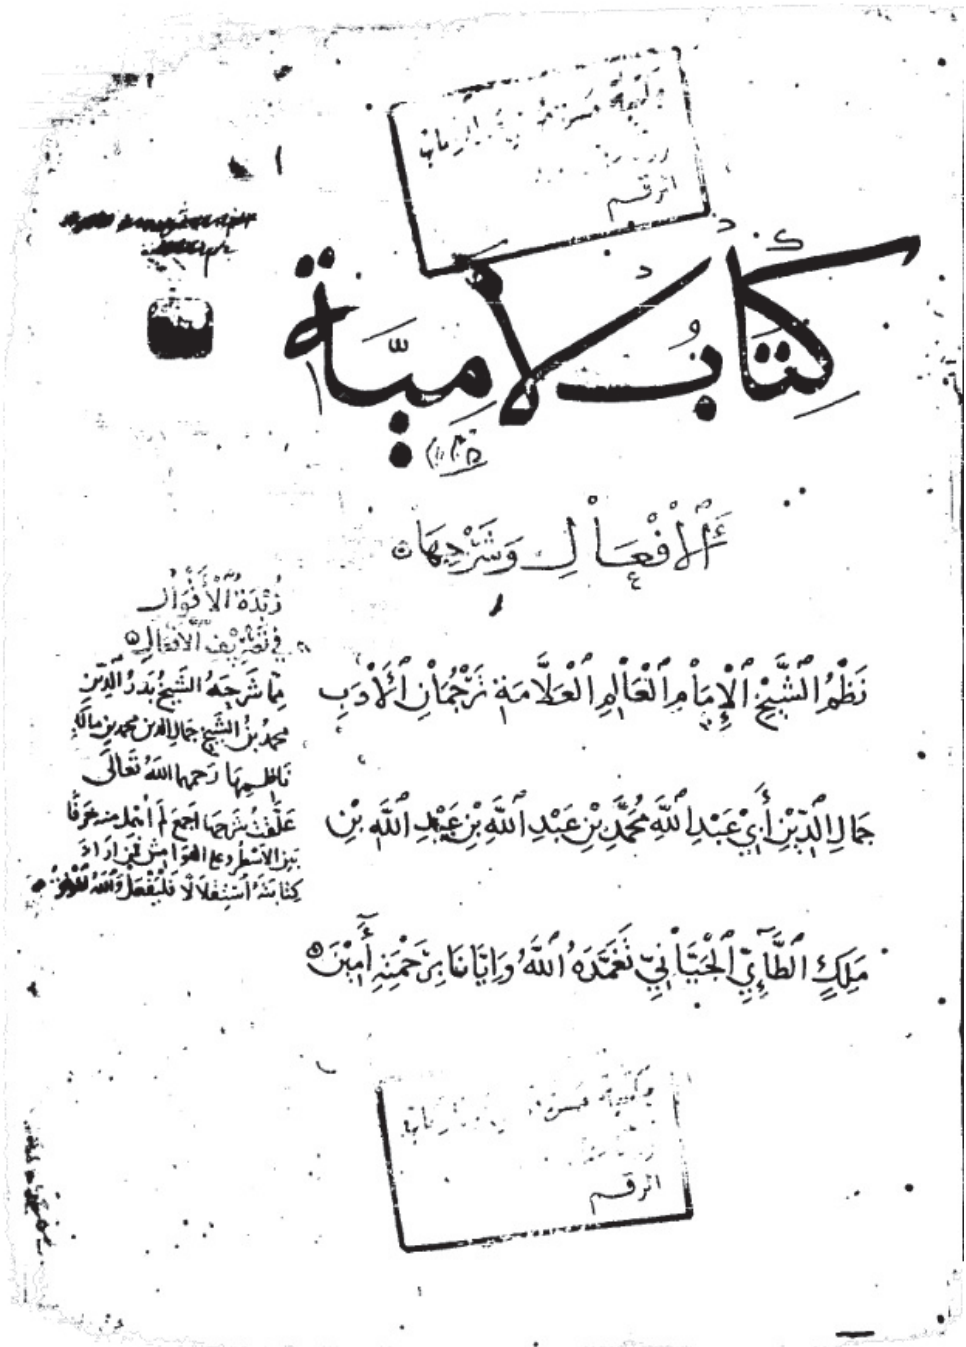 الرقم
كِتَابُ لَامِيَّة
ٱلْأَفْعَالِ وَشَرْحِهَا
نَظْمُ ٱلشَّيْخِ ٱلْإِمَامِ ٱلْعَالِمِ ٱلْعَلَّامَةِ تَرْجُمَانِ ٱلْأَدَبِ
جَمَالِ ٱلدِّيْنِ أَبِيْ عَبْدِ ٱللَّهِ مُحَمَّدِ بْنِ عَبْدِ ٱللَّهِ بْنِ عَبْدِ ٱللَّهِ بْنِ
مَلِكٍ ٱلطَّآئِيِّ ٱلْجَيَّانِيِّ تَغَمَّدَهُ ٱللَّهُ وَإِيَّانَا بِرَحْمَتِهِ أٓمِيْنَ
زُبْدَةُ ٱلْأَقْوَالِ
فِي تَصْرِيْفِ ٱلْأَفْعَالِ
مِمَّا شَرَحَهُ الشَّيْخُ بَدْرُ الدِّيْنِ
مُحمدُ بْنُ الشَّيْخِ جمَالِ الدين محمد بن مالك
نَاظِمِهَا رَحِمَهُمَا اللهُ تَعَالَى
عَلَّقْتُ شَرْحَهَا أجمَعَ لَمْ أُهْمِلْ مِنهُ حَرْفًا
بَيْنَ الأَسْطُرِ وَعَلَى الْهَوَامِشِ فَمَنْ أَرَادَ
كِتَابَتَهُ ٱسْتِقْلَالًا فَلْيَفْعَلْ وَٱللهُ
الرقم